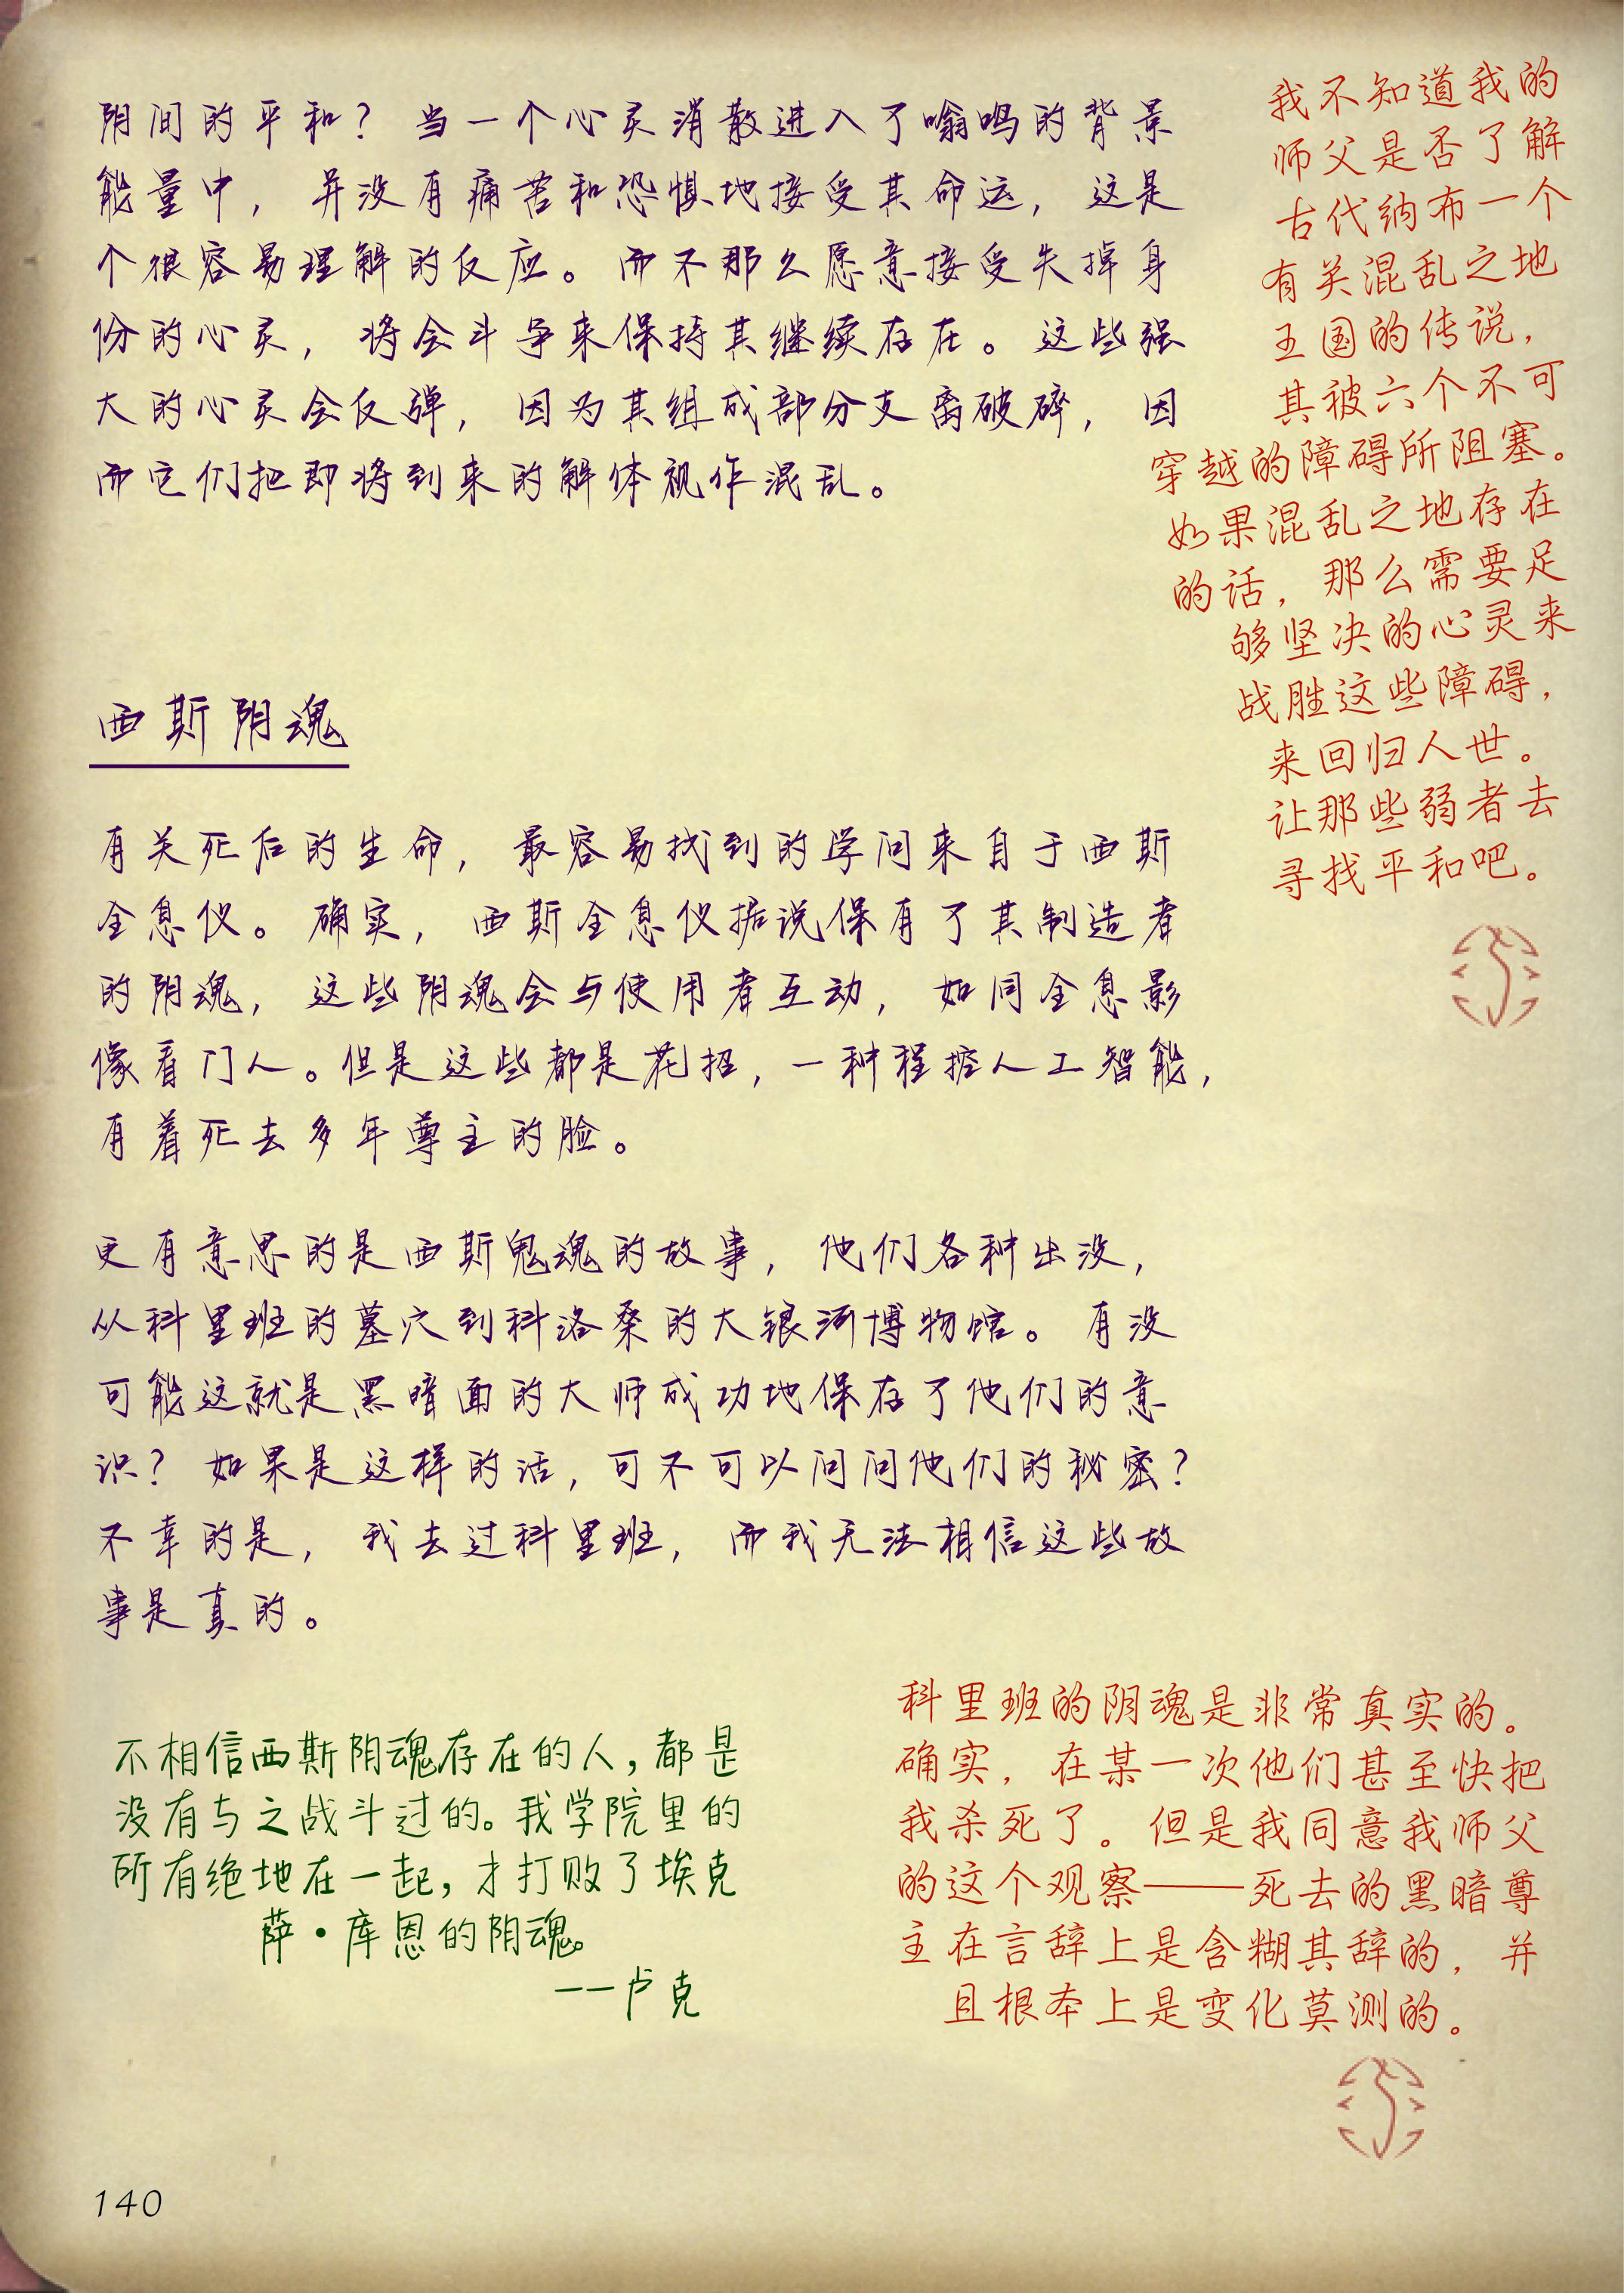 阴间的平和？当一个心灵消散进入了嗡鸣的背景
能量中，并没有痛苦和恐惧地接受其命运，这是
个很容易理解的反应。而不那么愿意接受失掉身
份的心灵，将会斗争来保持其继续存在。这些强
大的心灵会反弹，因为其组成部分支离破碎，因
而它们把即将到来的解体视作混乱。
我不知道我的
师父是否了解
古代纳布一个
有关混乱之地
王国的传说，
其被六个不可
穿越的障碍所阻塞。
如果混乱之地存在
的话，那么需要足
够坚决的心灵来
战胜这些障碍，
来回归人世。
让那些弱者去
寻找平和吧。
西斯阴魂
有关死后的生命，最容易找到的学问来自于西斯
全息仪。确实，西斯全息仪据说保有了其制造者
的阴魂，这些阴魂会与使用者互动，如同全息影
像看门人。但是这些都是花招，一种程控人工智能，
有着死去多年尊主的脸。
更有意思的是西斯鬼魂的故事，他们各种出没，
从科里班的墓穴到科洛桑的大银河博物馆。有没
可能这就是黑暗面的大师成功地保存了他们的意
识？如果是这样的话，可不可以问问他们的秘密？
不幸的是，我去过科里班，而我无法相信这些故
事是真的。
不相信西斯阴魂存在的人，都是
没有与之战斗过的。我学院里的
所有绝地在一起，才打败了埃克
萨·库恩的阴魂。
——卢克
科里班的阴魂是非常真实的。
确实，在某一次他们甚至快把
我杀死了。但是我同意我师父
的这个观察——死去的黑暗尊
主在言辞上是含糊其辞的，并
且根本上是变化莫测的。
140